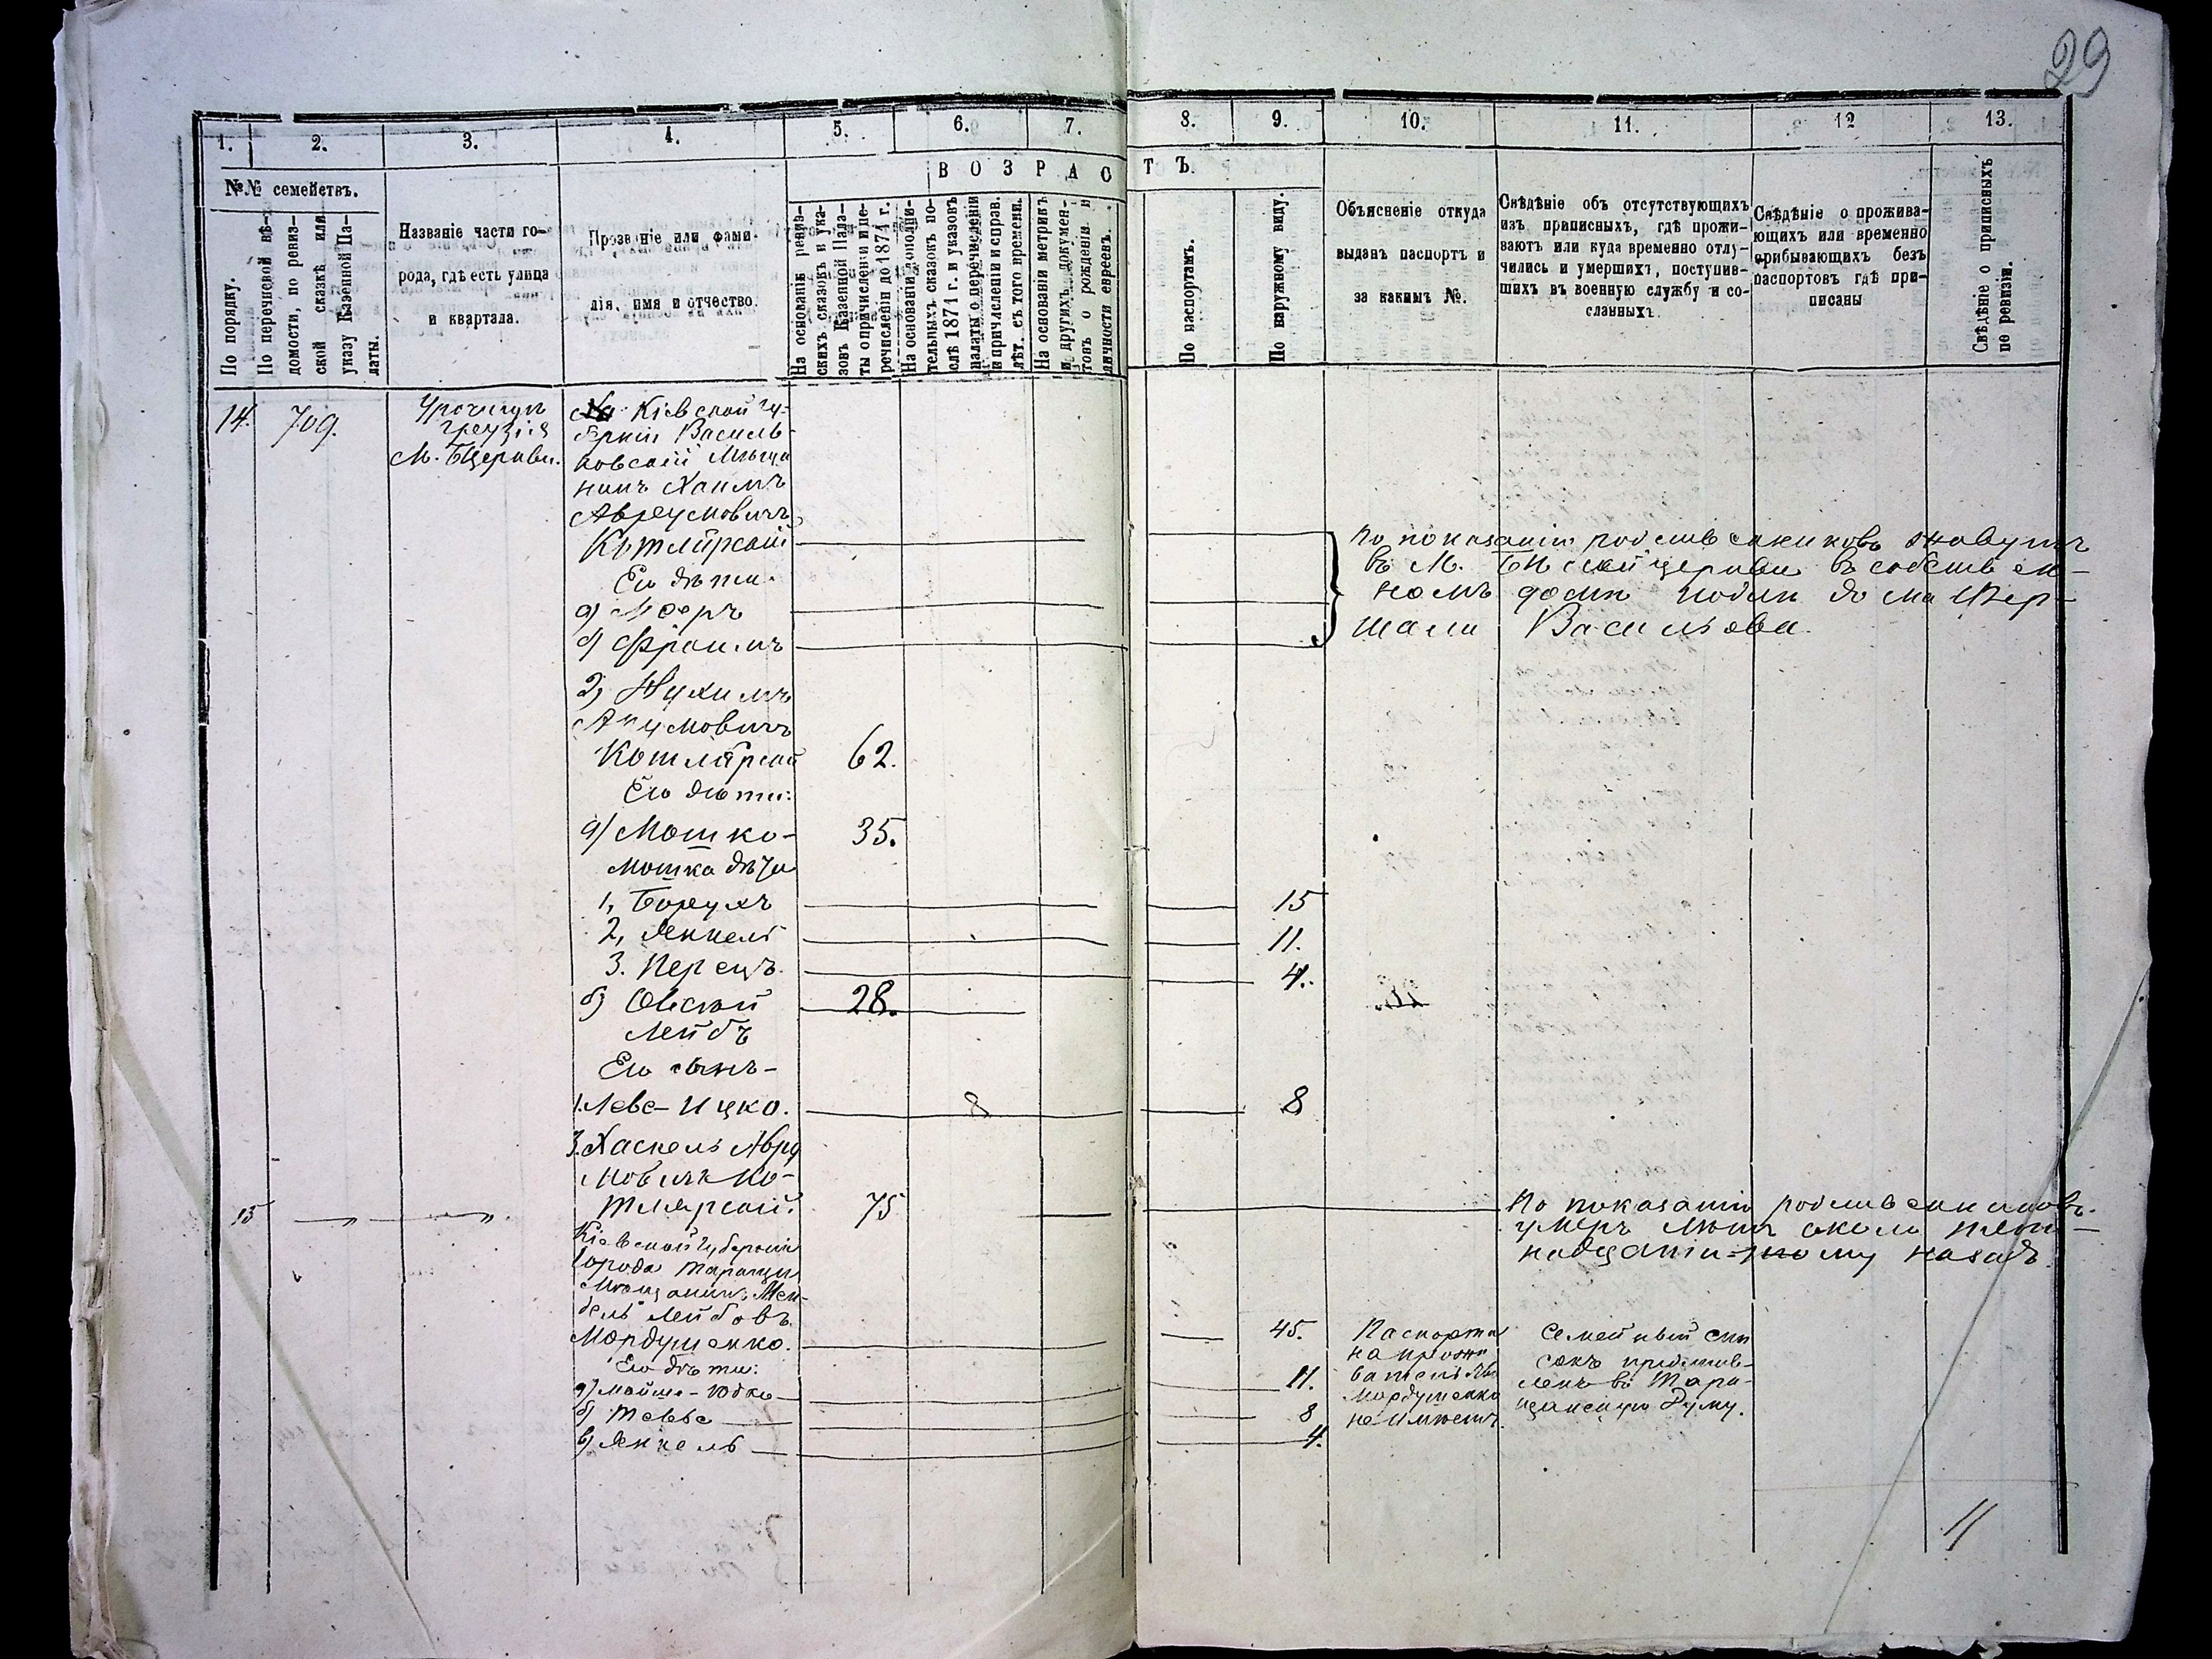 29
1. 2. 3. 4. 5. 6. 7. 8. 9. 10. 11. 12 13.
№№ семействъ.
По порядку.
По перечневой вѣ-
домости, по ревиз-
ской сказкѣ или
указу Казенной Па-
латы.
Названіе части го-
рода, гдѣ есть улица
и квартала.
Прозваніе или фами-
лія, имя и отчество.
ВОЗРАСТЪ.
На основаніи ревиз-
скихъ сказокъ и ука-
зовъ Казенной Пала-
ты о причисленіи и пе-
речисленіи до 1871 г.
На основаніи дополни-
тельныхъ сказокъ по-
слѣ 1871 г. и указовъ
палаты о перечисленіи
и причисленіи и справ.
лѣт. съ того времени.
На основаніи метрикъ
и другихъ докумен-
товъ о рожденіи и
личности евреевъ.
По паспортамъ.
По наружному виду.
Объясненіе откуда
выданъ паспортъ и
за какимъ №.
Свѣдѣніе объ отсутствующихъ
изъ приписныхъ, гдѣ прожи-
ваютъ или куда временно отлу-
чились и умершихъ, поступив-
шихъ въ военную службу и со-
сланныхъ.
Свѣдѣніе о прожива-
ющихъ или временно
прибывающихъ безъ
паспортовъ гдѣ при-
писаны
Свѣдѣніе о приписныхъ
по ревизіи.
14. 709.
Урочищѣ
Грузія
М. БЦеркви.
Кіевской гу-
берніи Василь-
ковскій Мѣща
нинъ Хаимъ
Аврумовичъ
Котлярскій
Его дѣти:
а) Мееръ
б) Фроимъ
По показанію родственниковъ живутъ
въ М. Бѣлой Церкви въ собствен-
номъ домѣ подлѣ дома
Васильова.
2, Нухимъ
Аврумовичъ
Котлярскій 62.
Его дѣти:
а) Мошко- 35.
Мошка дѣти
1, Борухъ 15
2, Янкель 11.
3. Перецъ. 4.
б) Овсѣй 28.
Лейбъ
Его сынъ-
1. Лебе-Ицко. 8 8
3. Хаскель Авру
мовичъ Ко-
тлярскій. 75
По показанію родственниковъ
умеръ лѣтъ около пят-
надцати тому назадъ.
15 —„— —„—.
Кіевской Губерніи
города Таращи
Мѣщанинъ Мен-
дель Лейбовъ
Мордушенко. 45.
Его дѣти:
а) Мойше-Юдко 11.
б) Тевье 8
в) Янкель 4.
Паспорта
на прожи
вательств
Мордушенко
не имѣетъ.
Семейный спи
сокъ представ-
ленъ въ Тара-
щанскую Думу.
11